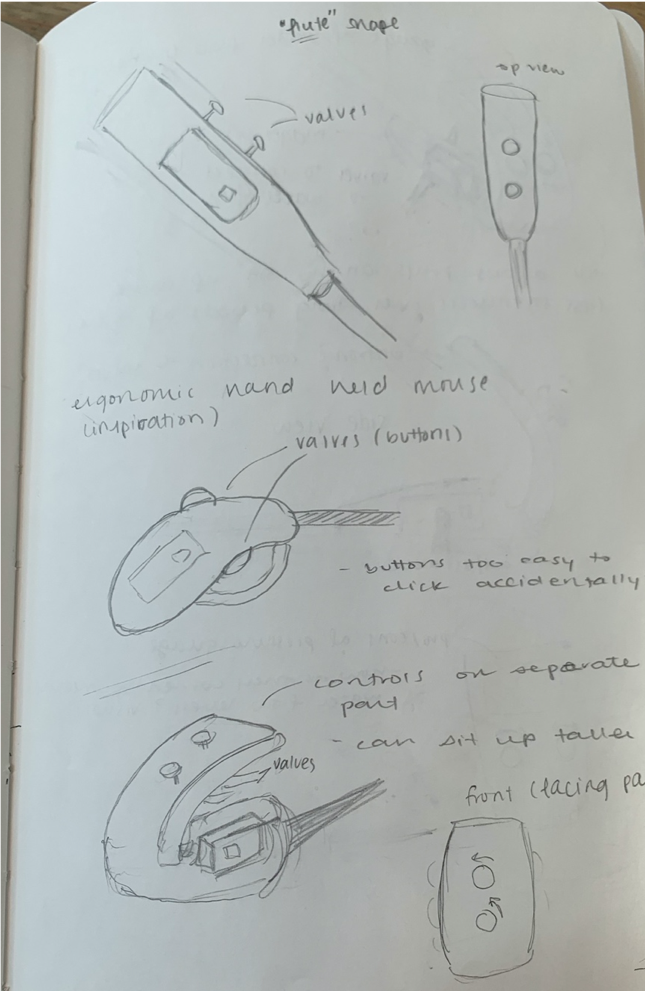 "flute" shape
top view
valves
ergonomic hand held mouse
(inspiration)
valves (buttons)
- buttons too easy to
click accidentally
controls on separate
part
- can sit up taller
valves
front (facing pa